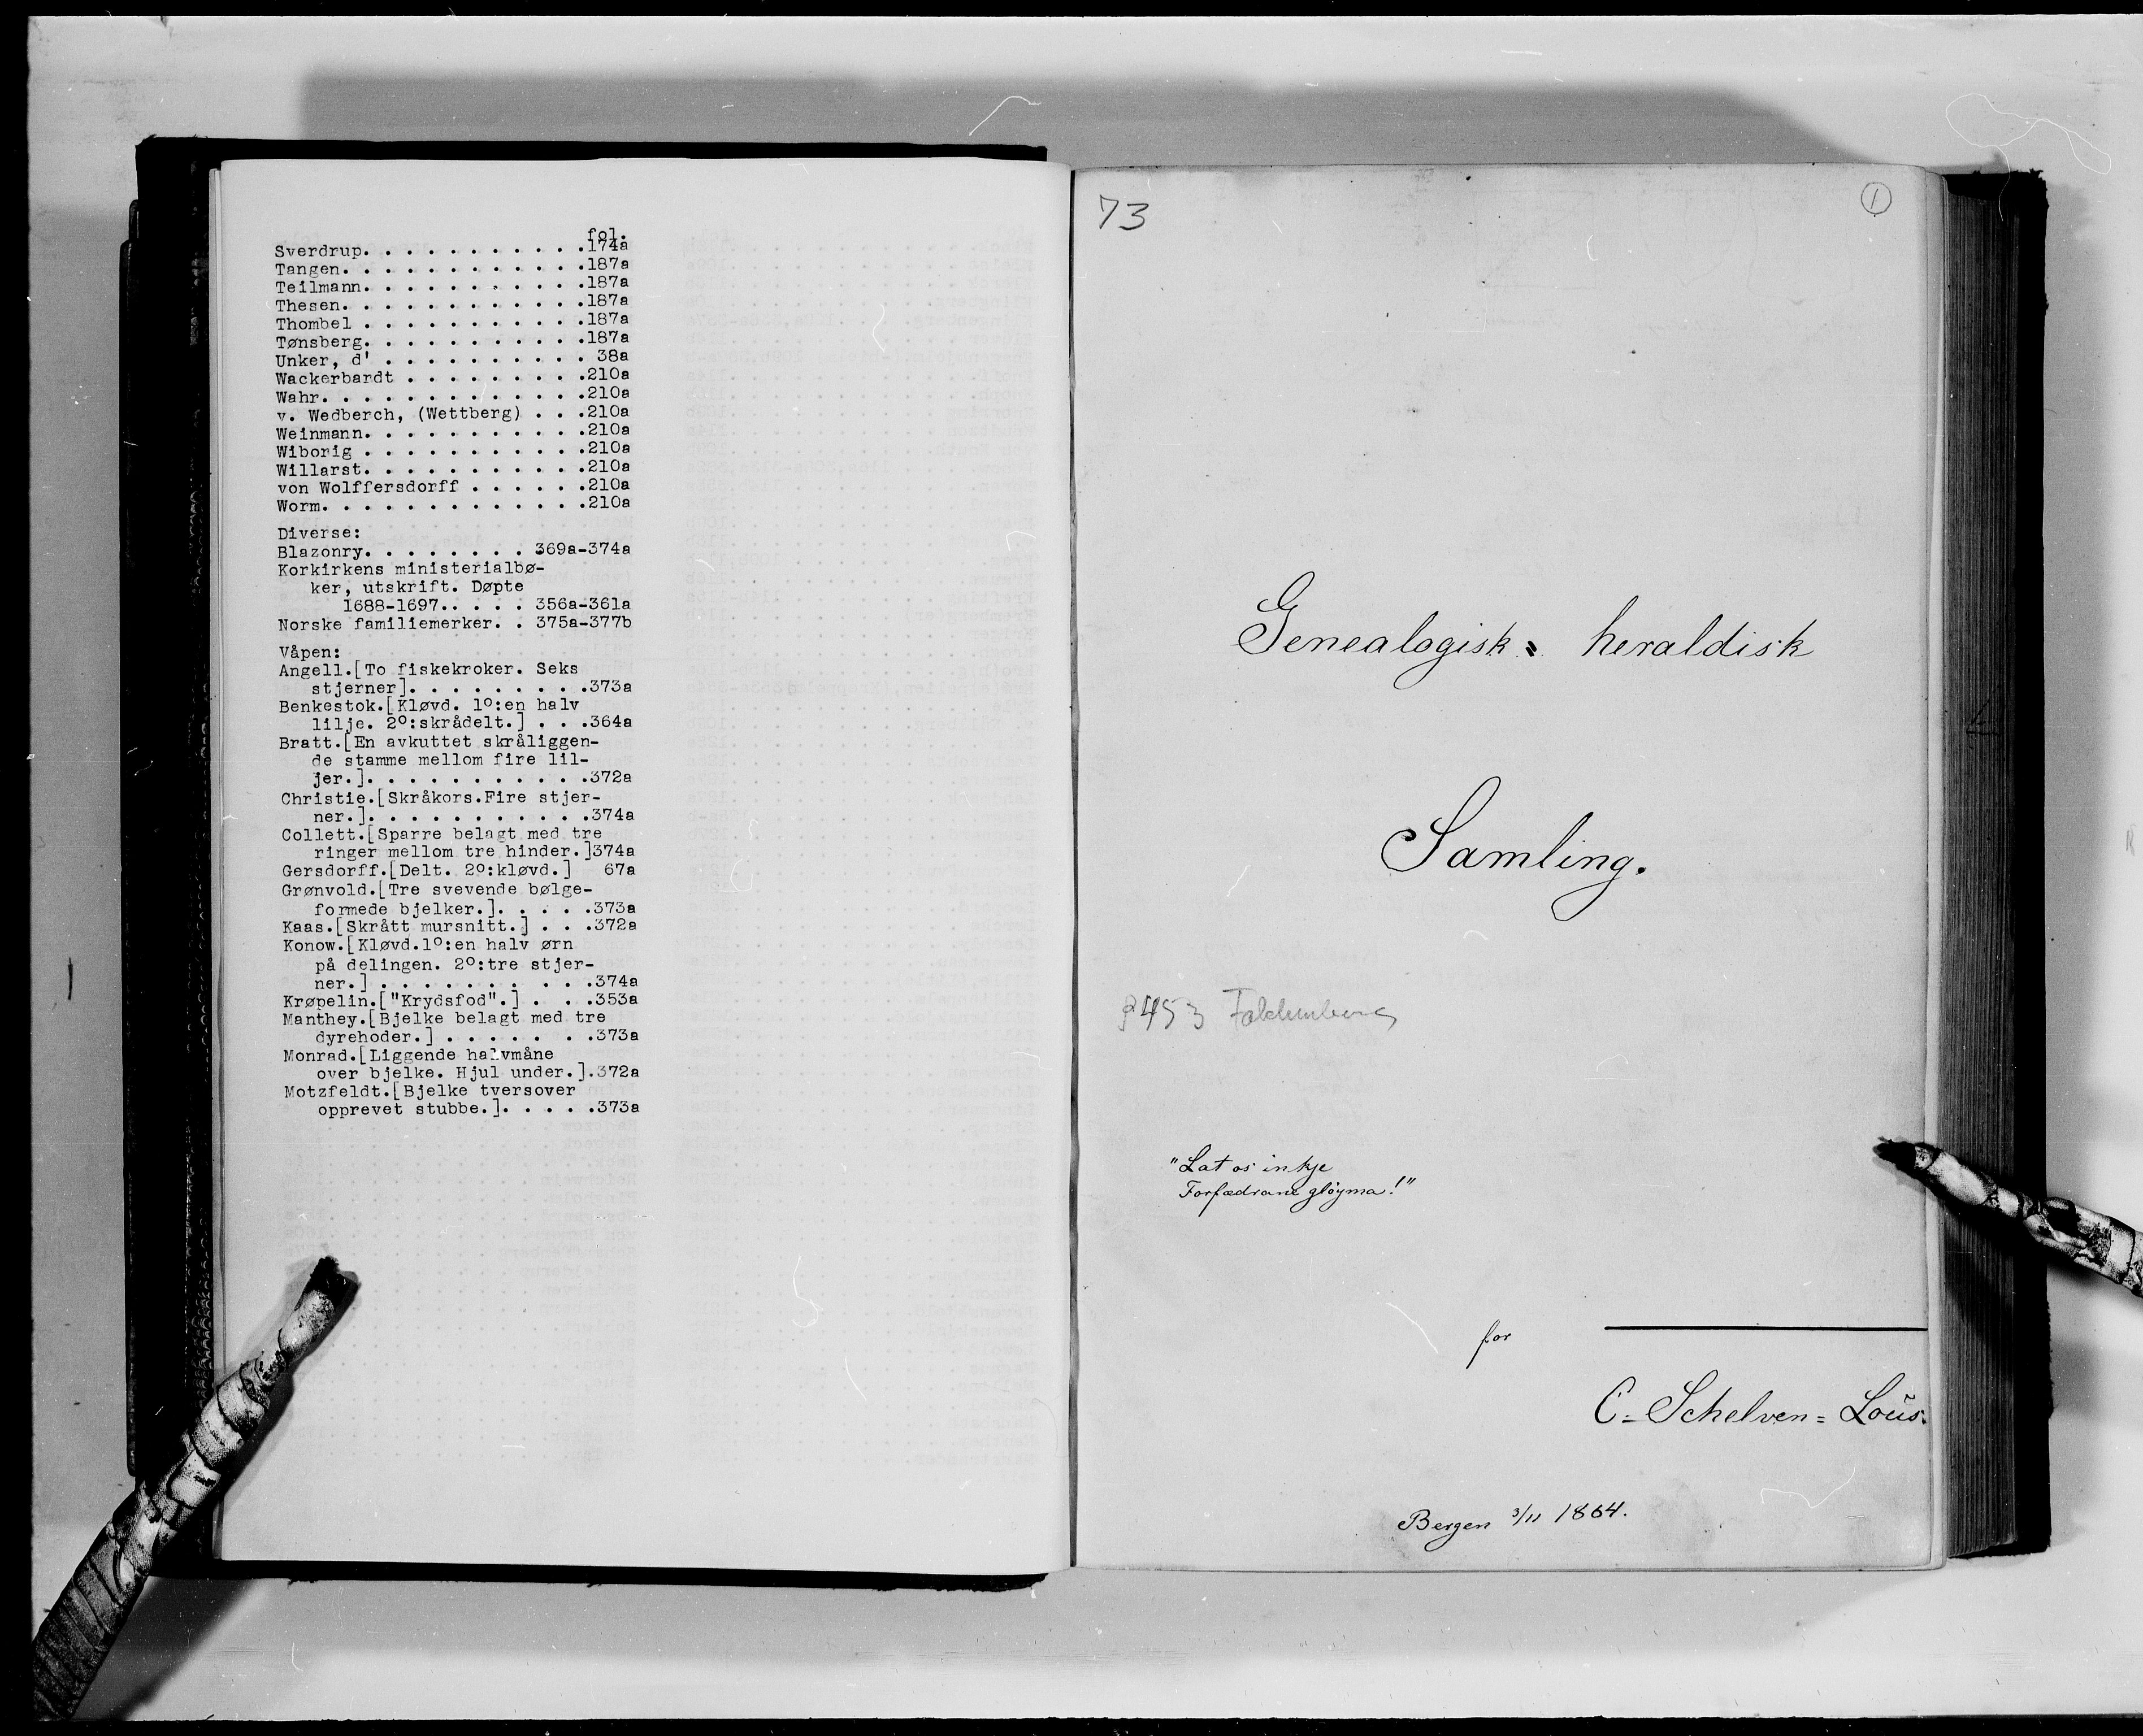 fol.
Sverdrup. . . . . . . . . . .174a
Tangen. . . . . . . . . . . .187a
Teilmann. . . . . . . . . . .187a
Thesen. . . . . . . . . . . .187a
Thombel . . . . . . . . . . .187a
Tønsberg. . . . . . . . . . .187a
Unker, d' . . . . . . . . . . 38a
Wackerbardt . . . . . . . . .210a
Wahr. . . . . . . . . . . . .210a
v. Wedberch, (Wettberg) . . .210a
Weinmann. . . . . . . . . . .210a
Wiborig . . . . . . . . . . .210a
Willarst. . . . . . . . . . .210a
von Wolffersdorff . . . . . .210a
Worm. . . . . . . . . . . . .210a
Diverse:
Blazonry. . . . . . . . 369a-374a
Korkirkens ministerialbø-
ker, utskrift. Døpte
1688-1697.. . . . 356a-361a
Norske familiemerker. . 375a-377b
Våpen:
Angell.[To fiskekroker. Seks
stjerner]. . . . . . . . .373a
Benkestok.[Kløvd. 1º:en halv
lilje. 2º:skrådelt.] . . .364a
Bratt.[En avkuttet skråliggen-
de stamme mellom fire lil-
jer.]. . . . . . . . . . .372a
Christie.[Skråkors.Fire stjer-
ner.]. . . . . . . . . . .374a
Collett.[Sparre belagt med tre
ringer mellom tre hinder.]374a
Gersdorff.[Delt. 2º:kløvd.] 67a
Grønvold.[Tre svevende bølge-
formede bjelker.]. . . . .373a
Kaas.[Skrått mursnitt.] . . .372a
Konow.[Kløvd.1º:en halv ørn
på delingen. 2º:tre stjer-
ner.] . . . . . . . . . .374a
Krøpelin.["Krydsfod".] . . .353a
Manthey.[Bjelke belagt med tre
dyrehoder.] . . . . . . .373a
Monrad.[Liggende halvmåne
over bjelke. Hjul under.].372a
Motzfeldt.[Bjelke tversover
opprevet stubbe.]. . . . .373a
73
1
Genealogisk= heraldisk
Samling.
453
"Lat os inkje
Forfædrane gløyma!"
for
C= Schelven= Loüs.
Bergen 3/11 1864.